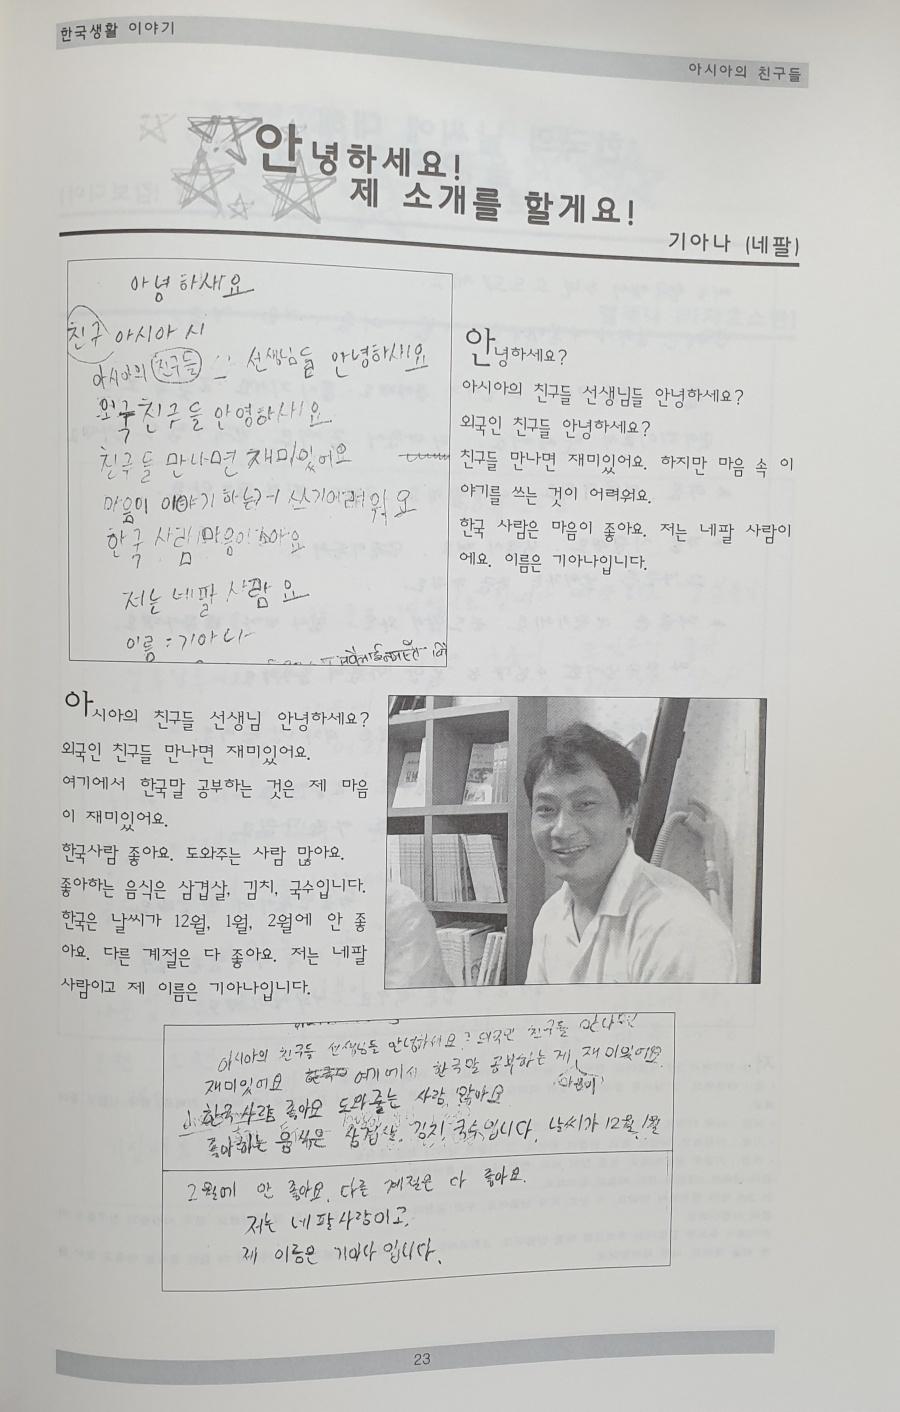 한국생활 이야기
아시아의 친구들
안녕하세요!
제 소개를 할게요!
기아나 (네팔)
안녕하새요
친구 아시아 시
아시아의 친구들 선생님들 안녕하세요
외국친구들 안영하세요
친구들 만나면 재미있어요
마음이 이야기 하는거 쓰기어려워요
한국 사람 마음이 좋아요
저는 네팔 사람요
이름 : 기아나
안녕하세요?
아시아의 친구들 선생님들 안녕하세요?
외국인 친구들 안녕하세요?
친구들 만나면 재미있어요. 하지만 마음 속 이
야기를 쓰는 것이 어려워요.
한국 사람은 마음이 좋아요. 저는 네팔 사람이
에요. 이름은 기아나입니다.
아시아의 친구들 선생님 안녕하세요?
외국인 친구들 만나면 재미있어요.
여기에서 한국말 공부하는 것은 제 마음
이 재미있어요.
한국사람 좋아요. 도와주는 사람 많아요.
좋아하는 음식은 삼겹살, 김치, 국수입니다.
한국은 날씨가 12월, 1월, 2월에 안 좋
아요. 다른 계절은 다 좋아요. 저는 네팔
사람이고 제 이름은 기아나입니다.
아시아의 친구들 선생님들 안녕하세요? 외국인 친구들 만나면
재미있어요 여기에서 한국말 공부하는 게 재미있어요.
마음이
한국사람 좋아요 도와줄는 사람 많아요
좋아하는 음식은 삼겹살, 김치, 국수입니다. 날씨가 12월, 1월
2월에 안 좋아요. 다른 계절은 다 좋아요.
저는 네팔사람이고,
제 이름은 기아나입니다.
23